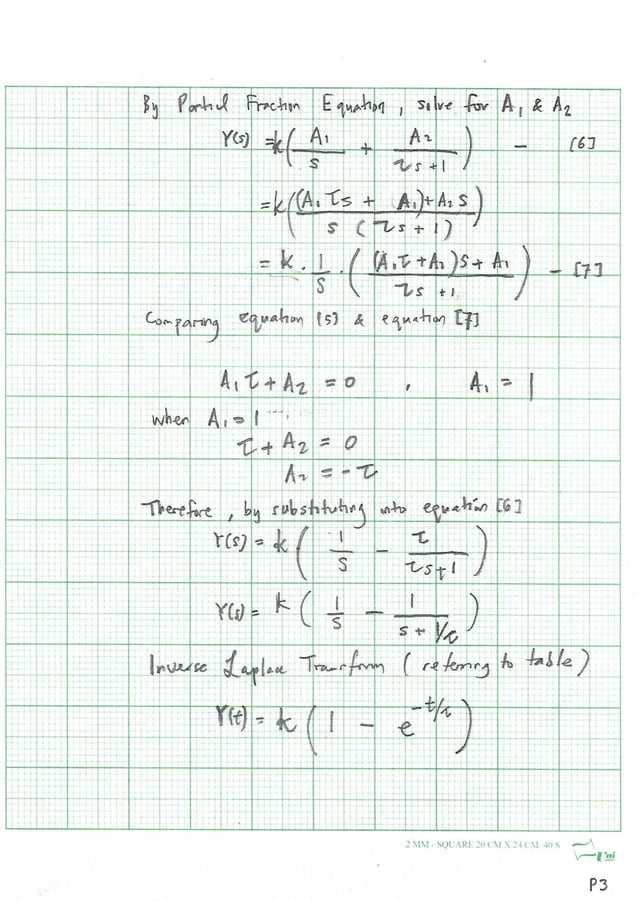 By Partial Fraction Equation, solve for A₁ & A₂
Y(s) = k( A₁/s + A₂/(τs+1) ) — [6]
= k( ((A₁τs + A₁)+A₂s) / (s(τs+1)) )
= k · 1/s · ( ((A₁τ+A₂)s + A₁) / (τs+1) ) — [7]
Comparing equation [5] & equation [7]
A₁τ + A₂ = 0 , A₁ = 1
when A₁ = 1
τ + A₂ = 0
A₂ = -τ
Therefore, by substituting into equation [6]
Y(s) = k( 1/s - τ/(τs+1) )
Y(s) = k( 1/s - 1/(s+1/τ) )
Inverse Laplace Transform (referring to table)
Y(t) = k( 1 - e^(-t/τ) )
2 MM - SQUARE 20 CM X 24 CM 40 S
P3